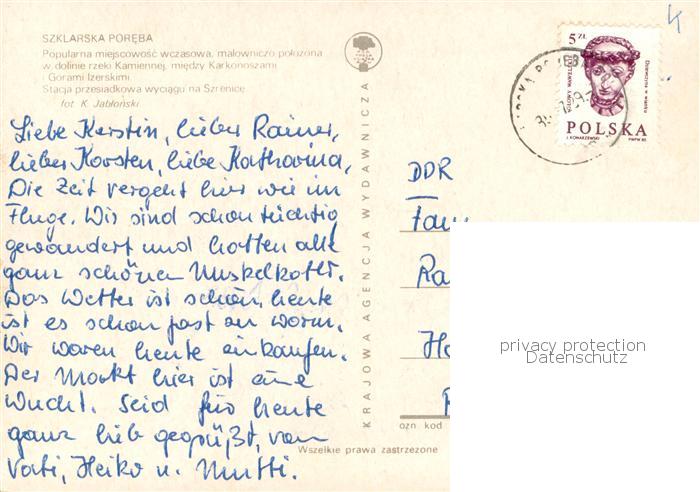 SZKLARSKA PORĘBA
Popularna miejscowość wczasowa, malowniczo położona
w dolinie rzeki Kamiennej, między Karkonoszami
i Górami Izerskimi.
Stacja przesiadkowa wyciągu na Szrenicę
fot. K. Jabłoński
Liebe Kerstin, lieber Rainer,
lieber Karsten, liebe Katharina,
Die Zeit vergeht hier wie im
Fluge. Wir sind schon tüchtig
gewandert und hatten alle
ganz schönen Muskelkater.
Das Wetter ist schön, heute
ist es schon fast zu warm.
Wir waren heute einkaufen.
Der Markt hier ist eine
Wucht. Seid für heute
ganz lieb gegrüßt, von
Vati, Heiko u. Mutti.
KRAJOWA AGENCJA WYDAWNICZA
5 ZŁ
POLSKA
DDR
Fam
Ra
Ha
ozn. kod
Wszelkie prawa zastrzeżone
privacy protection
Datenschutz